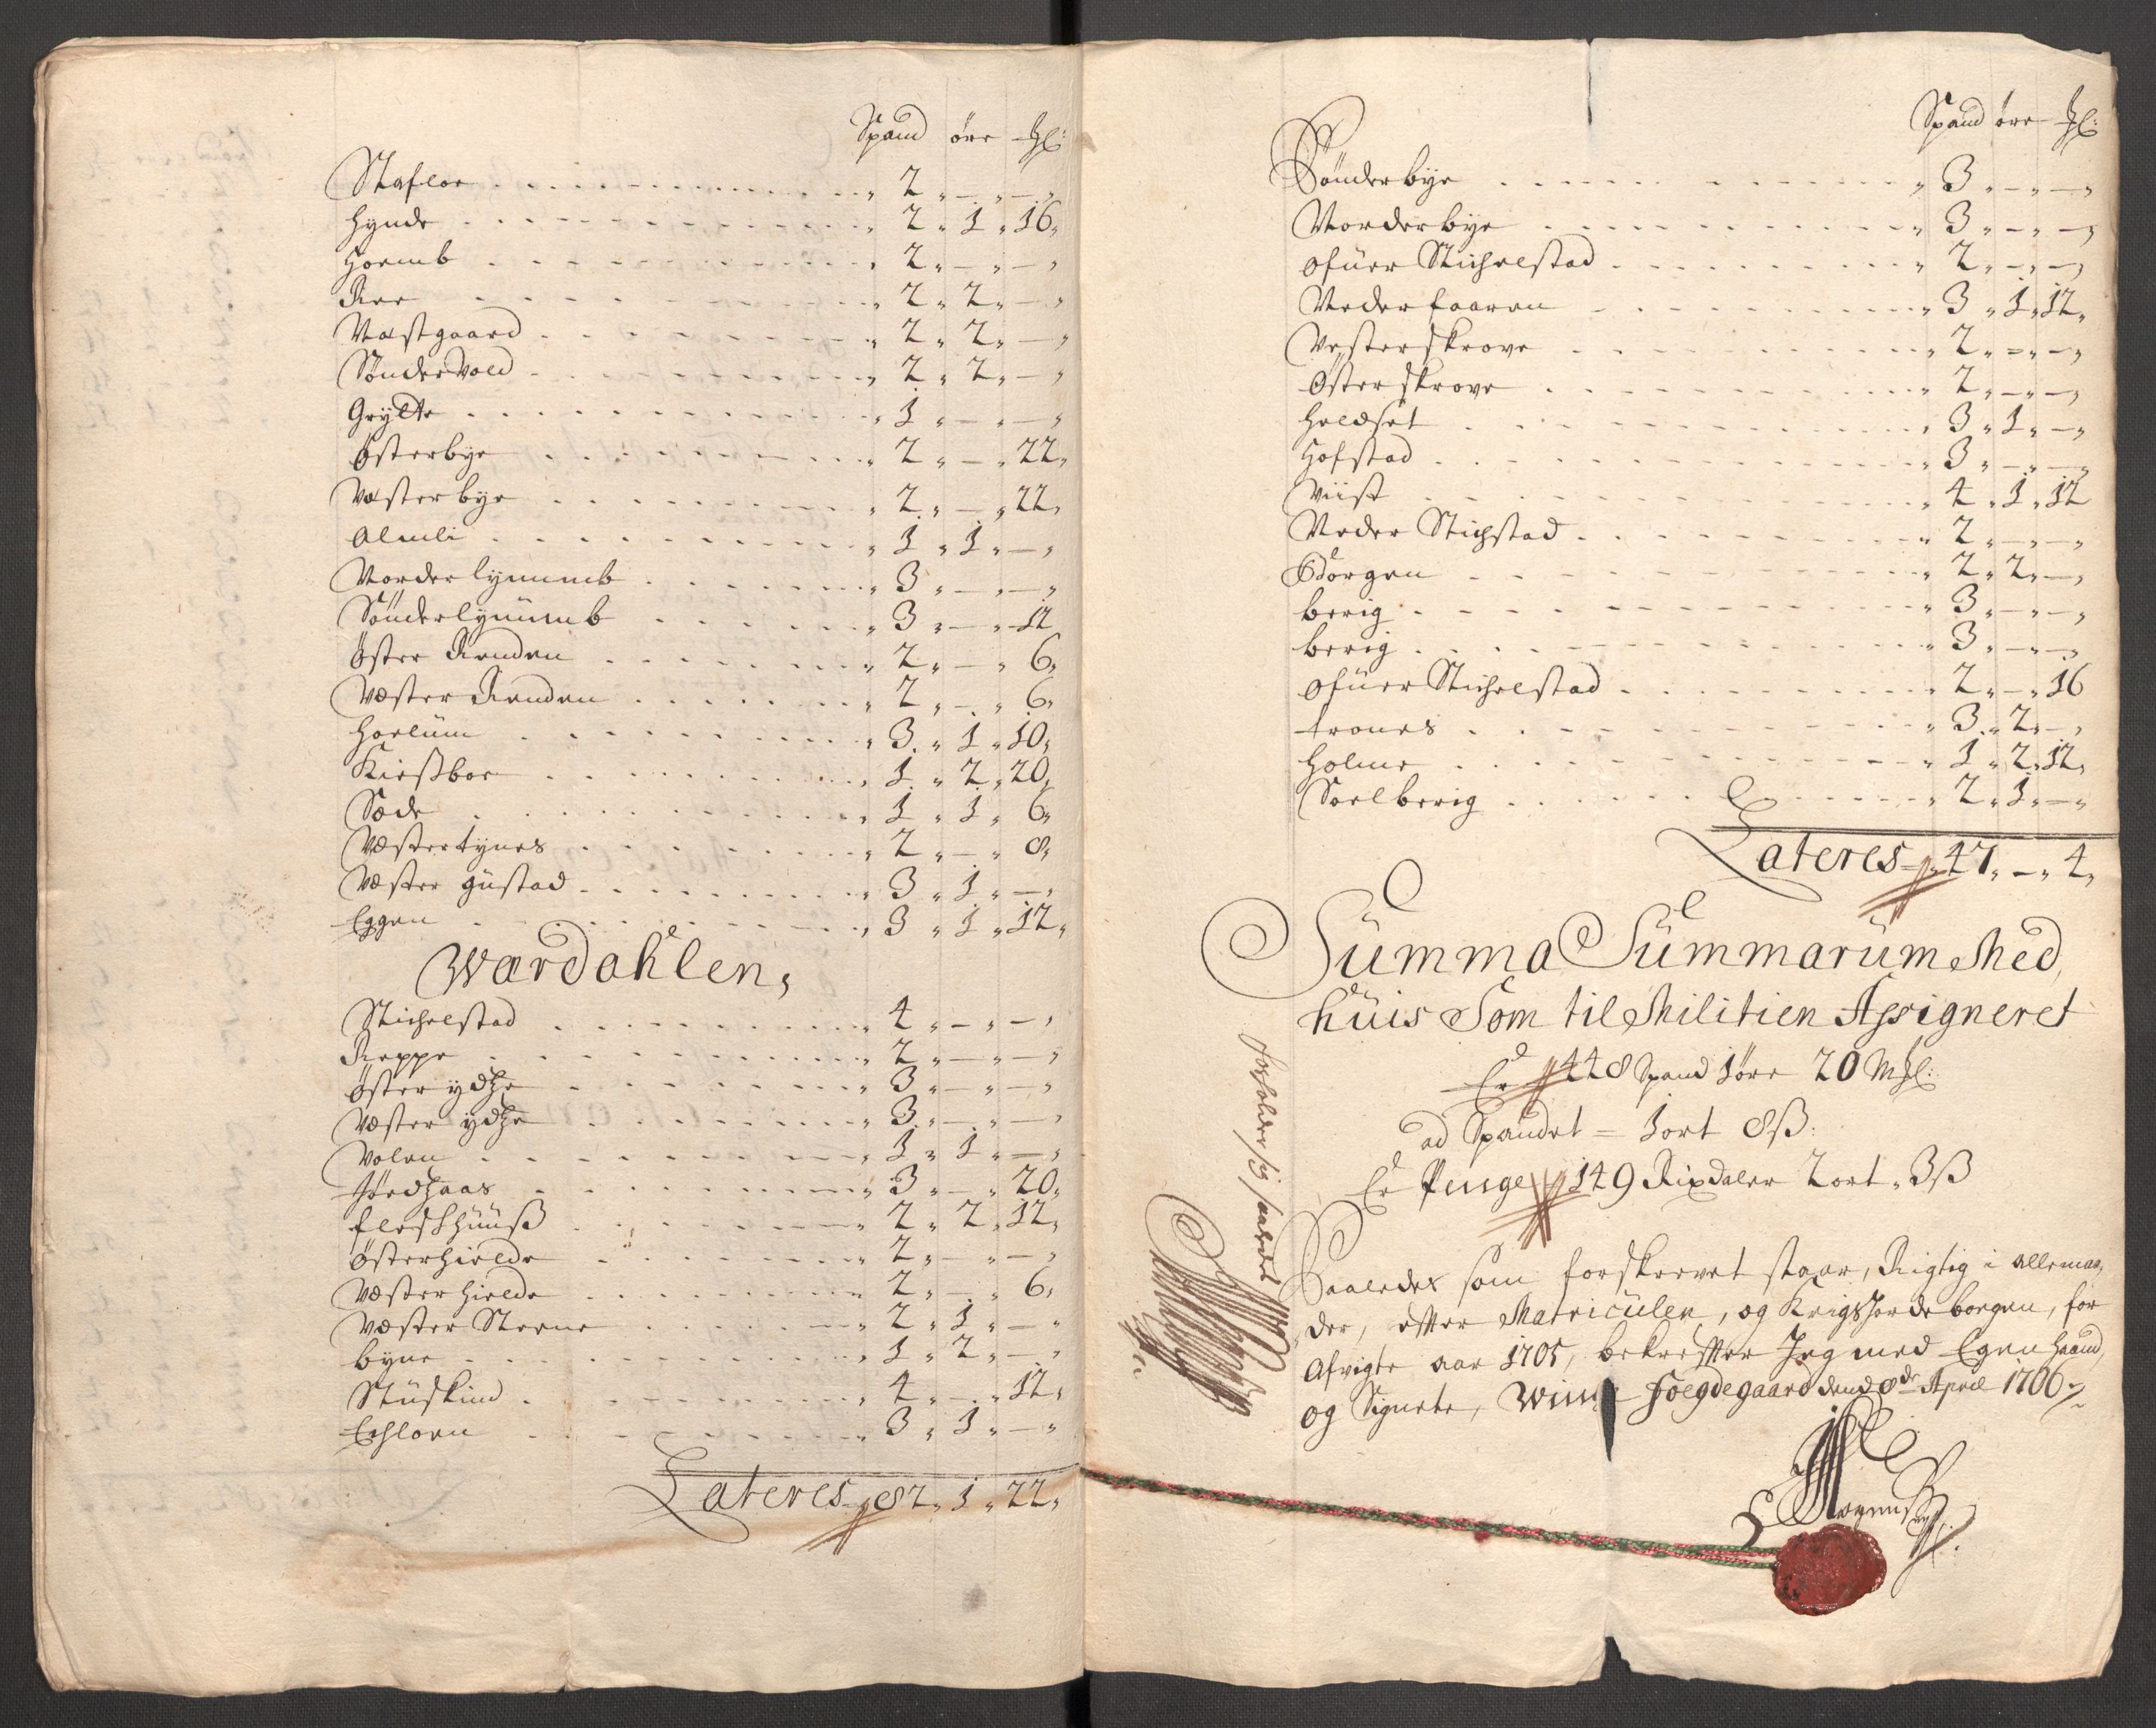 Spand öre
Staflor 2 - -
Hynde 2 1 16
Hoemb 2 - -
Ree 2 2 -
Wæstgaard 2 2 -
Sönderwold 2 2 -
Grylte 1 - -
Østerbye 2 - 22
Wæsterbye 2 - 22
Almli 1 1 -
Norderlynumb 3 - -
Sönderlynumb 3 - 12
Øster Renden 2 - 6
Wæster Renden 2 - 6
Hoelum 3 1 10
2 20
1 1 6
Wæstertynes 2 - 8
Wæster gustad 3 1 -
Eggen 3 1 12
Værdahlen,
Stichelstad 4 - -
Reppe 2 - -
Øster ydtze 3 - -
Wæster ydtze 3 - -
Wolen 1 1 -
3 - 20
Fleskhuuß 2 2 12
Østerhielde 2 - -
Wæsterhielde 2 - 6
Wæster Steene 2 1 -
Byne 1 2 -
Stuskind 4 - 12
Echloen 3 1 -
Lateres 82 1 22
Spand öre
Sönderbye 3 - -
Norderbye 3 - -
Ofuer Stichelstad 2 - -
Nederhaaren 3 1 12
Westerskrove 2 - -
Østerskrove 2 - -
Holdset 3 1 -
Hofstad 3 - -
Wiist 4 1 12
Neder Stichstad 2 - -
Borgen 2 2 -
berig 3 - -
berig 3 - -
Ofuer Stichelstad 2 - 16
trones 3 2 -
Holme 1 2 12
Soelberig 2 1 -
Lateres 47 - 4
Summa Summarum Med
huis Som til Militien Assigneret
Er 448 Spand 1 öre 20 Mkl:
ad Spandet = 1 ort 8 ß:
Er Penge 149 Rixdaler 2 ort 3 ß
Saaledes som forskrevet staar, Rigtig i allemaa-
der, effter Matriculen, og Krigs Jordebogen, for
Afvigte aar 1705, bekreffter Jeg med Egen Haand,
og Signete, Foegdegaard dend 8de April 1706